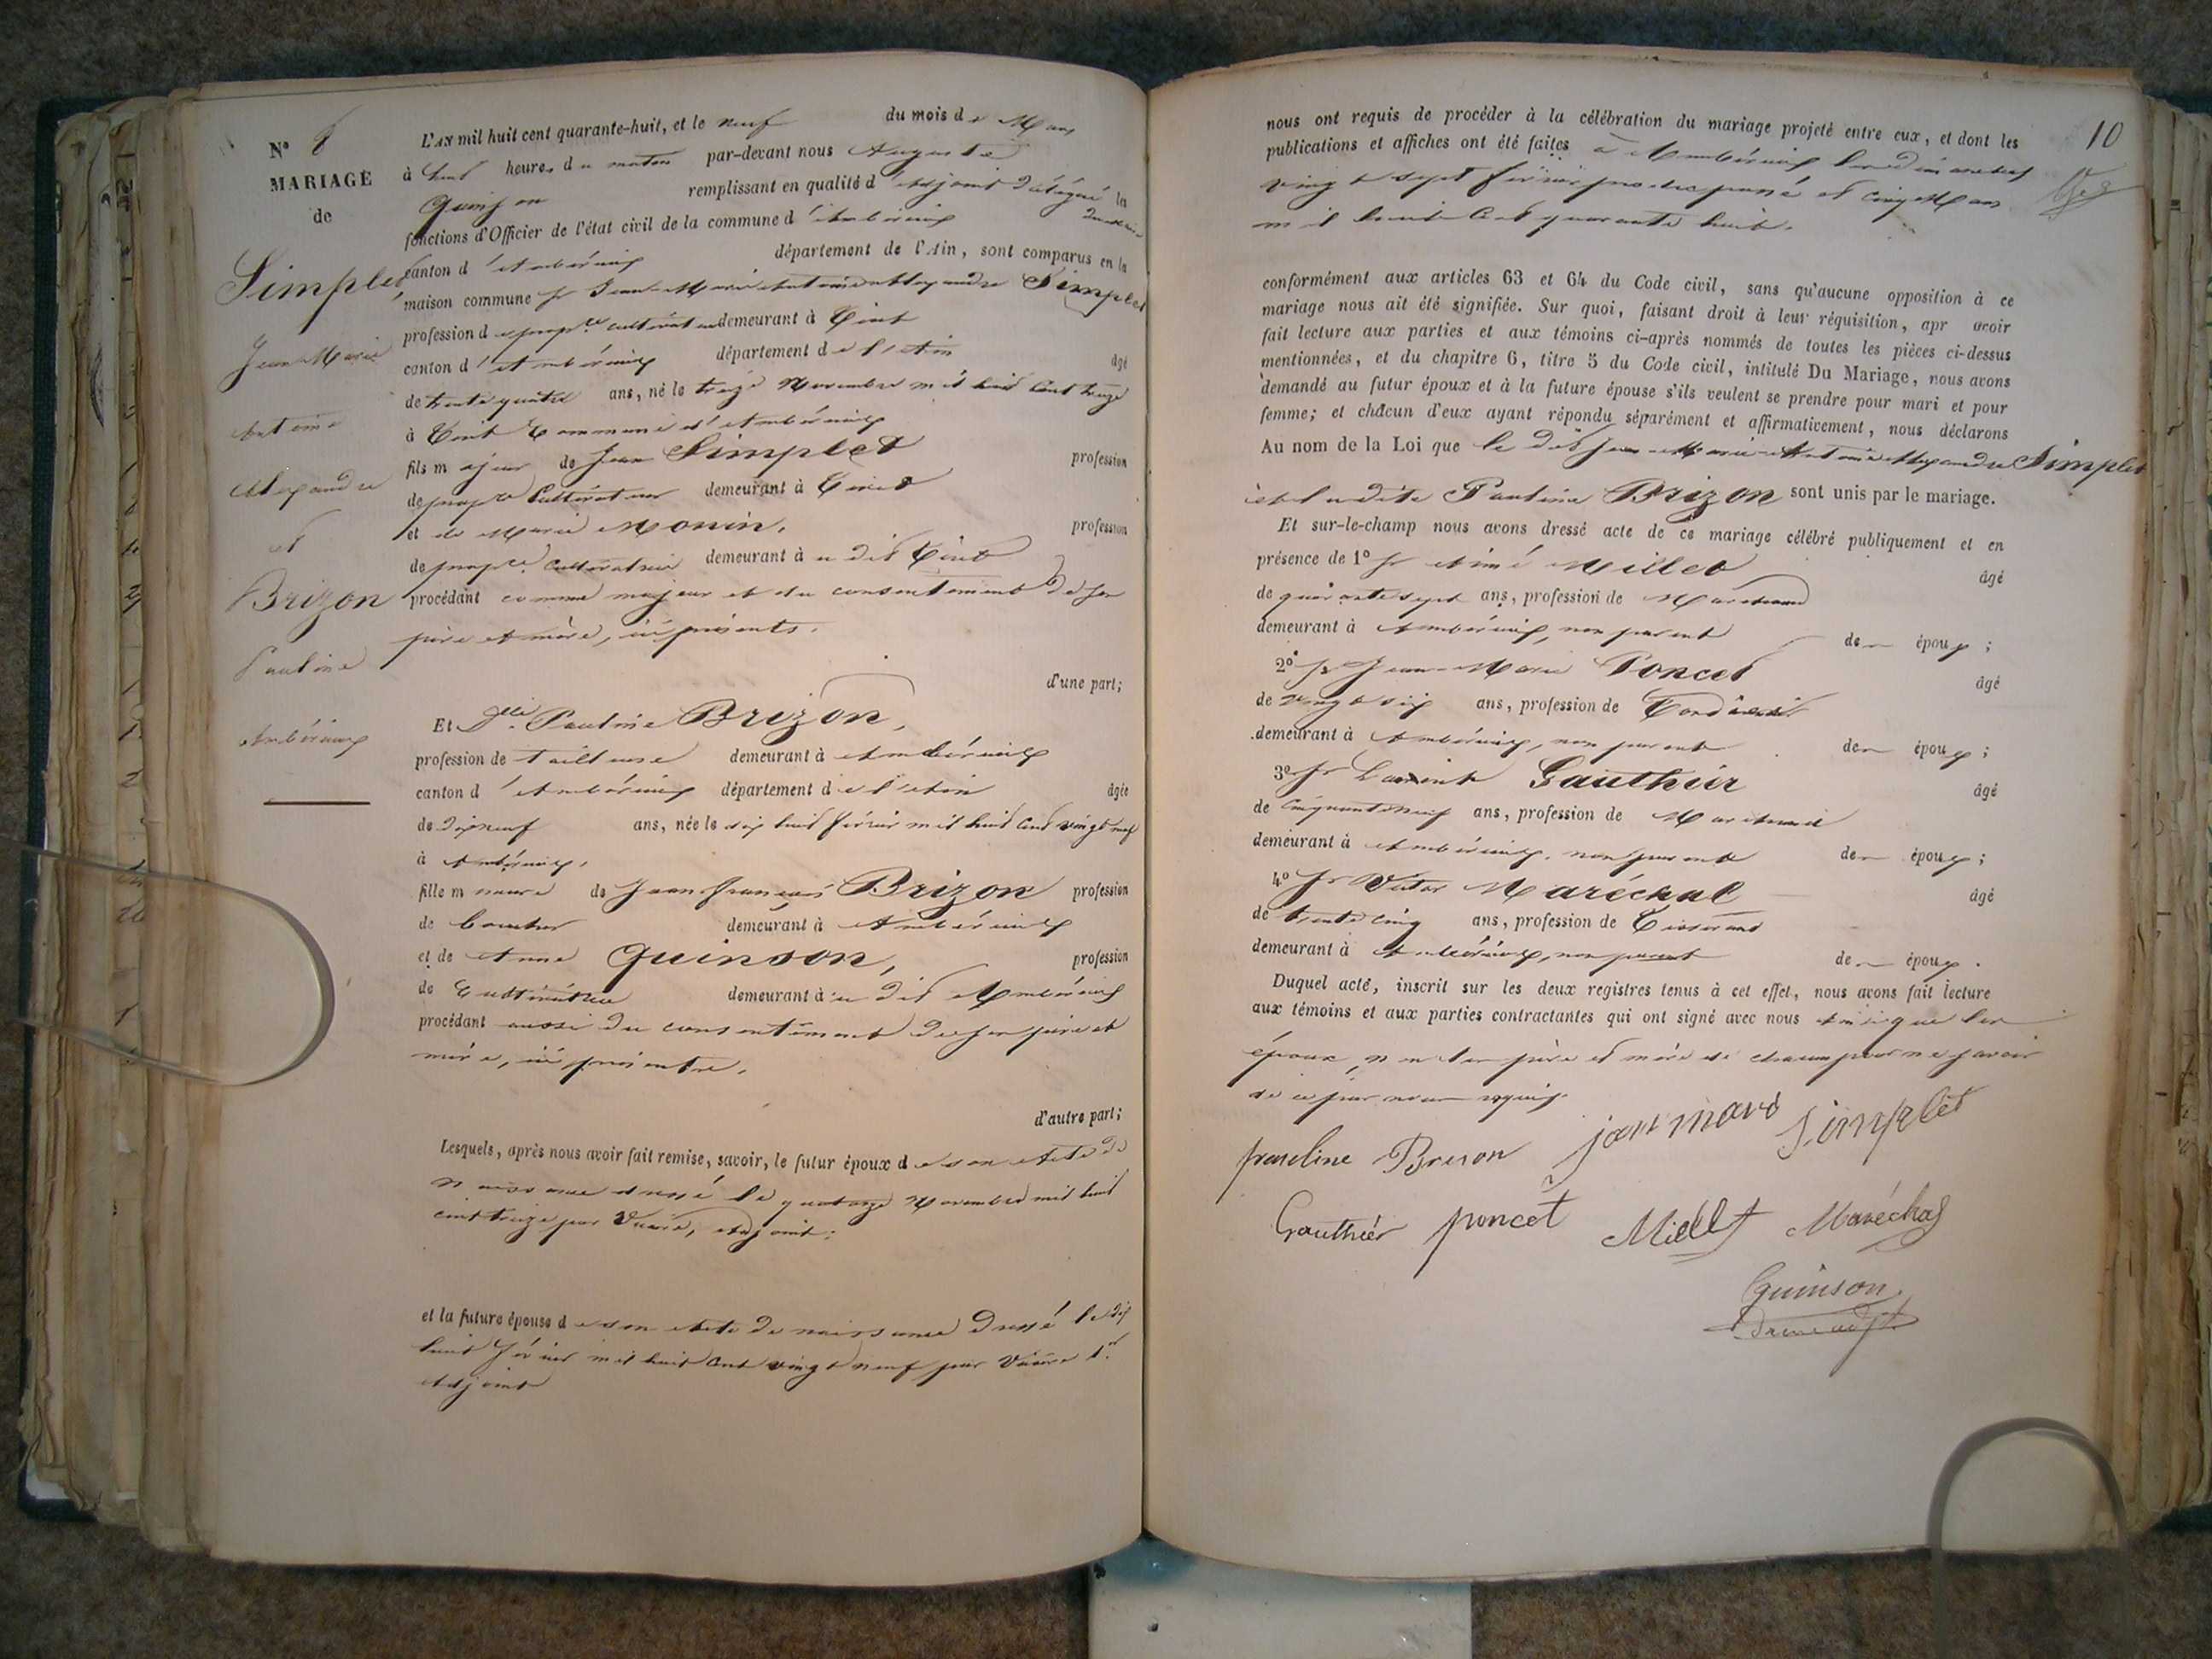 N° 8
MARIAGE
de
Simplet
Jean Marie
Antoine
Alexandre
et
Brizon
Pauline
Ambérieux
L'AN mil huit cent quarante-huit, et le neuf du mois de Mars
à huit heures du matin par-devant nous Auguste
Quinson remplissant en qualité d'adjoint délégué les
fonctions d'Officier de l'état civil de la commune d'Ambérieux
canton d'Ambérieux département de l'Ain, sont comparus en la
maison commune Sr Jean-Marie Antoine Alexandre Simplet
profession de propre cultivateur demeurant à Tiret
canton d'Ambérieux département de l'Ain âgé
de trente quatre ans, né le treize Novembre mil huit cent treize
à Tiret Commune d'Ambérieux
fils majeur de Jean Simplet profession
de propre Cultivateur demeurant à Tiret
et de Marie Monin, profession
de propre Cultivatrice demeurant au dit Tiret
procédant comme majeur et du consentement de ses
père et mère, ici présents.
d'une part;
Et Dlle Pauline Brizon,
profession de tailleuse demeurant à Ambérieux
canton d'Ambérieux département de l'Ain âgée
de dixneuf ans, née le dix huit février mil huit cent vingt neuf
à Ambérieux,
fille mineure de Jean François Brizon profession
de boucher demeurant à Ambérieux
et de Anne Quinson, profession
de Cultivatrice demeurant au dit Ambérieux
procédant aussi du consentement de ses père et
mère, ici présents.
d'autre part;
Lesquels, après nous avoir fait remise, savoir, le futur époux de son acte de
naissance dressé le quatorze Novembre mil huit
cent treize par adjoint;
et la future épouse de son acte de naissance dressé le dix
huit février mil huit cent vingt neuf par 1er
adjoint
10
nous ont requis de procéder à la célébration du mariage projeté entre eux, et dont les
publications et affiches ont été faites à Ambérieux les dimanches
vingt sept février passé et cinq Mars
mil huit cent quarante huit.
conformément aux articles 63 et 64 du Code civil, sans qu'aucune opposition à ce
mariage nous ait été signifiée. Sur quoi, faisant droit à leur réquisition, apr avoir
fait lecture aux parties et aux témoins ci-après nommés de toutes les pièces ci-dessus
mentionnées, et du chapitre 6, titre 5 du Code civil, intitulé Du Mariage, nous avons
demandé au futur époux et à la future épouse s'ils veulent se prendre pour mari et pour
femme; et chacun d'eux ayant répondu séparément et affirmativement, nous déclarons
Au nom de la Loi que le dit Jean-Marie-Antoine Alexandre Simplet
et la dite Pauline Brizon sont unis par le mariage.
Et sur-le-champ nous avons dressé acte de ce mariage célébré publiquement et en
présence de 1° Sr Aimé Millet âgé
de quarante sept ans, profession de Marchand
demeurant à Ambérieux, non parent des époux;
2° Sr Jean-Marie Poncet âgé
de vingt six ans, profession de
demeurant à Ambérieux, non parent des époux;
3° Sr Laurent Gauthier âgé
de cinquante neuf ans, profession de Marchand
demeurant à Ambérieux, non parent des époux;
4° Sr Victor Maréchal âgé
de trente cinq ans, profession de Tisserand
demeurant à Ambérieux, non parent des époux.
Duquel acte, inscrit sur les deux registres tenus à cet effet, nous avons fait lecture
aux témoins et aux parties contractantes qui ont signé avec nous ainsi que les
époux, non les père et mère de chacun pour ne savoir
de ce par nous requis.
pauline Brison jean marie Simplet
Gauthiér poncet Miellet Maréchal
Quinson